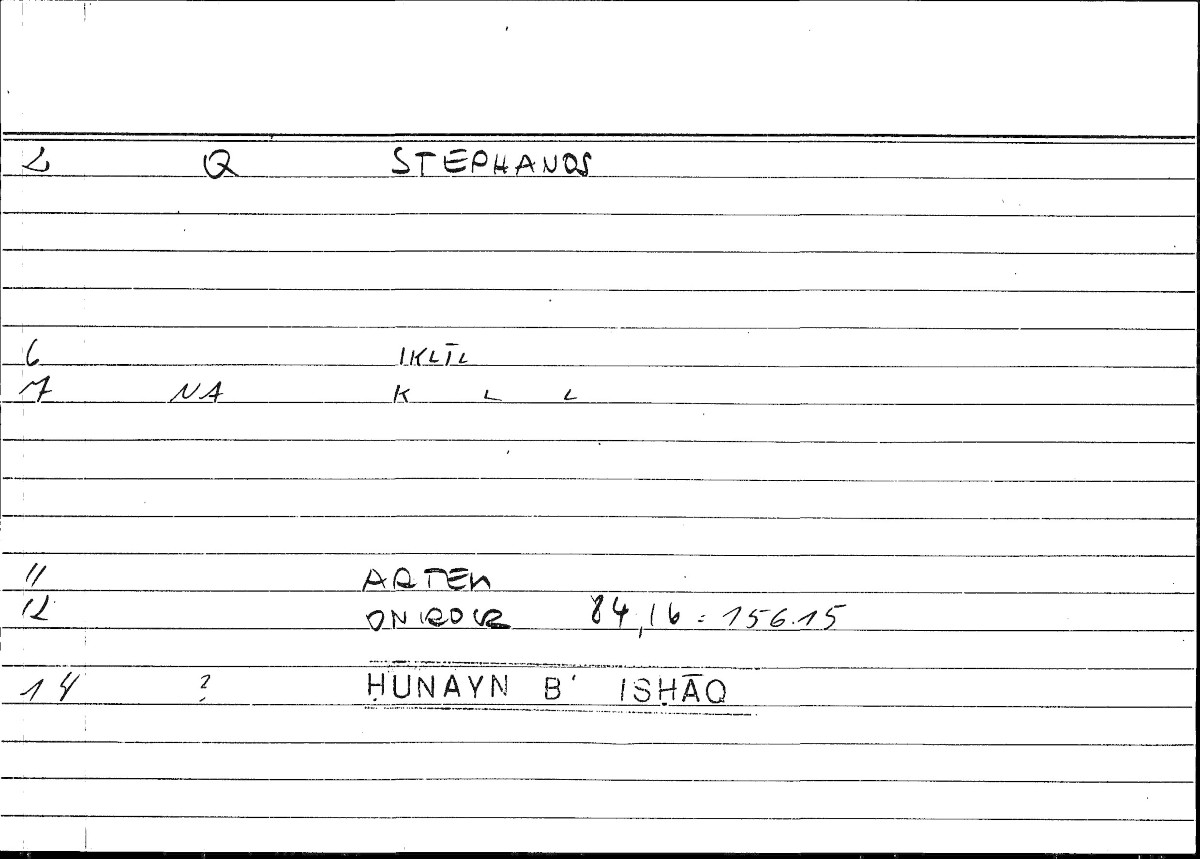 2 Q STEPHANOS
6 IKLĪL
7 NA K L L
11 ARTEM
12 ONIROCR 84,16 = 156.15
14 ? ḤUNAYN B' ISḤĀQ